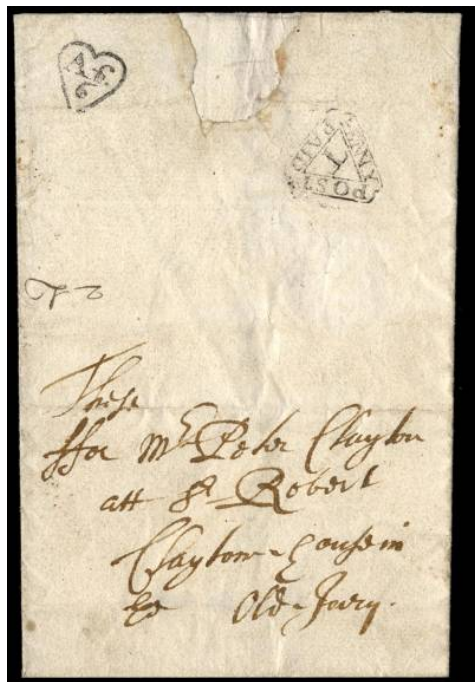 Af
6
PENNY POST PAID
T
These
ffor Mr Peter Clayton
att Sr Robert
Clayton house in
ye Old-Jury.